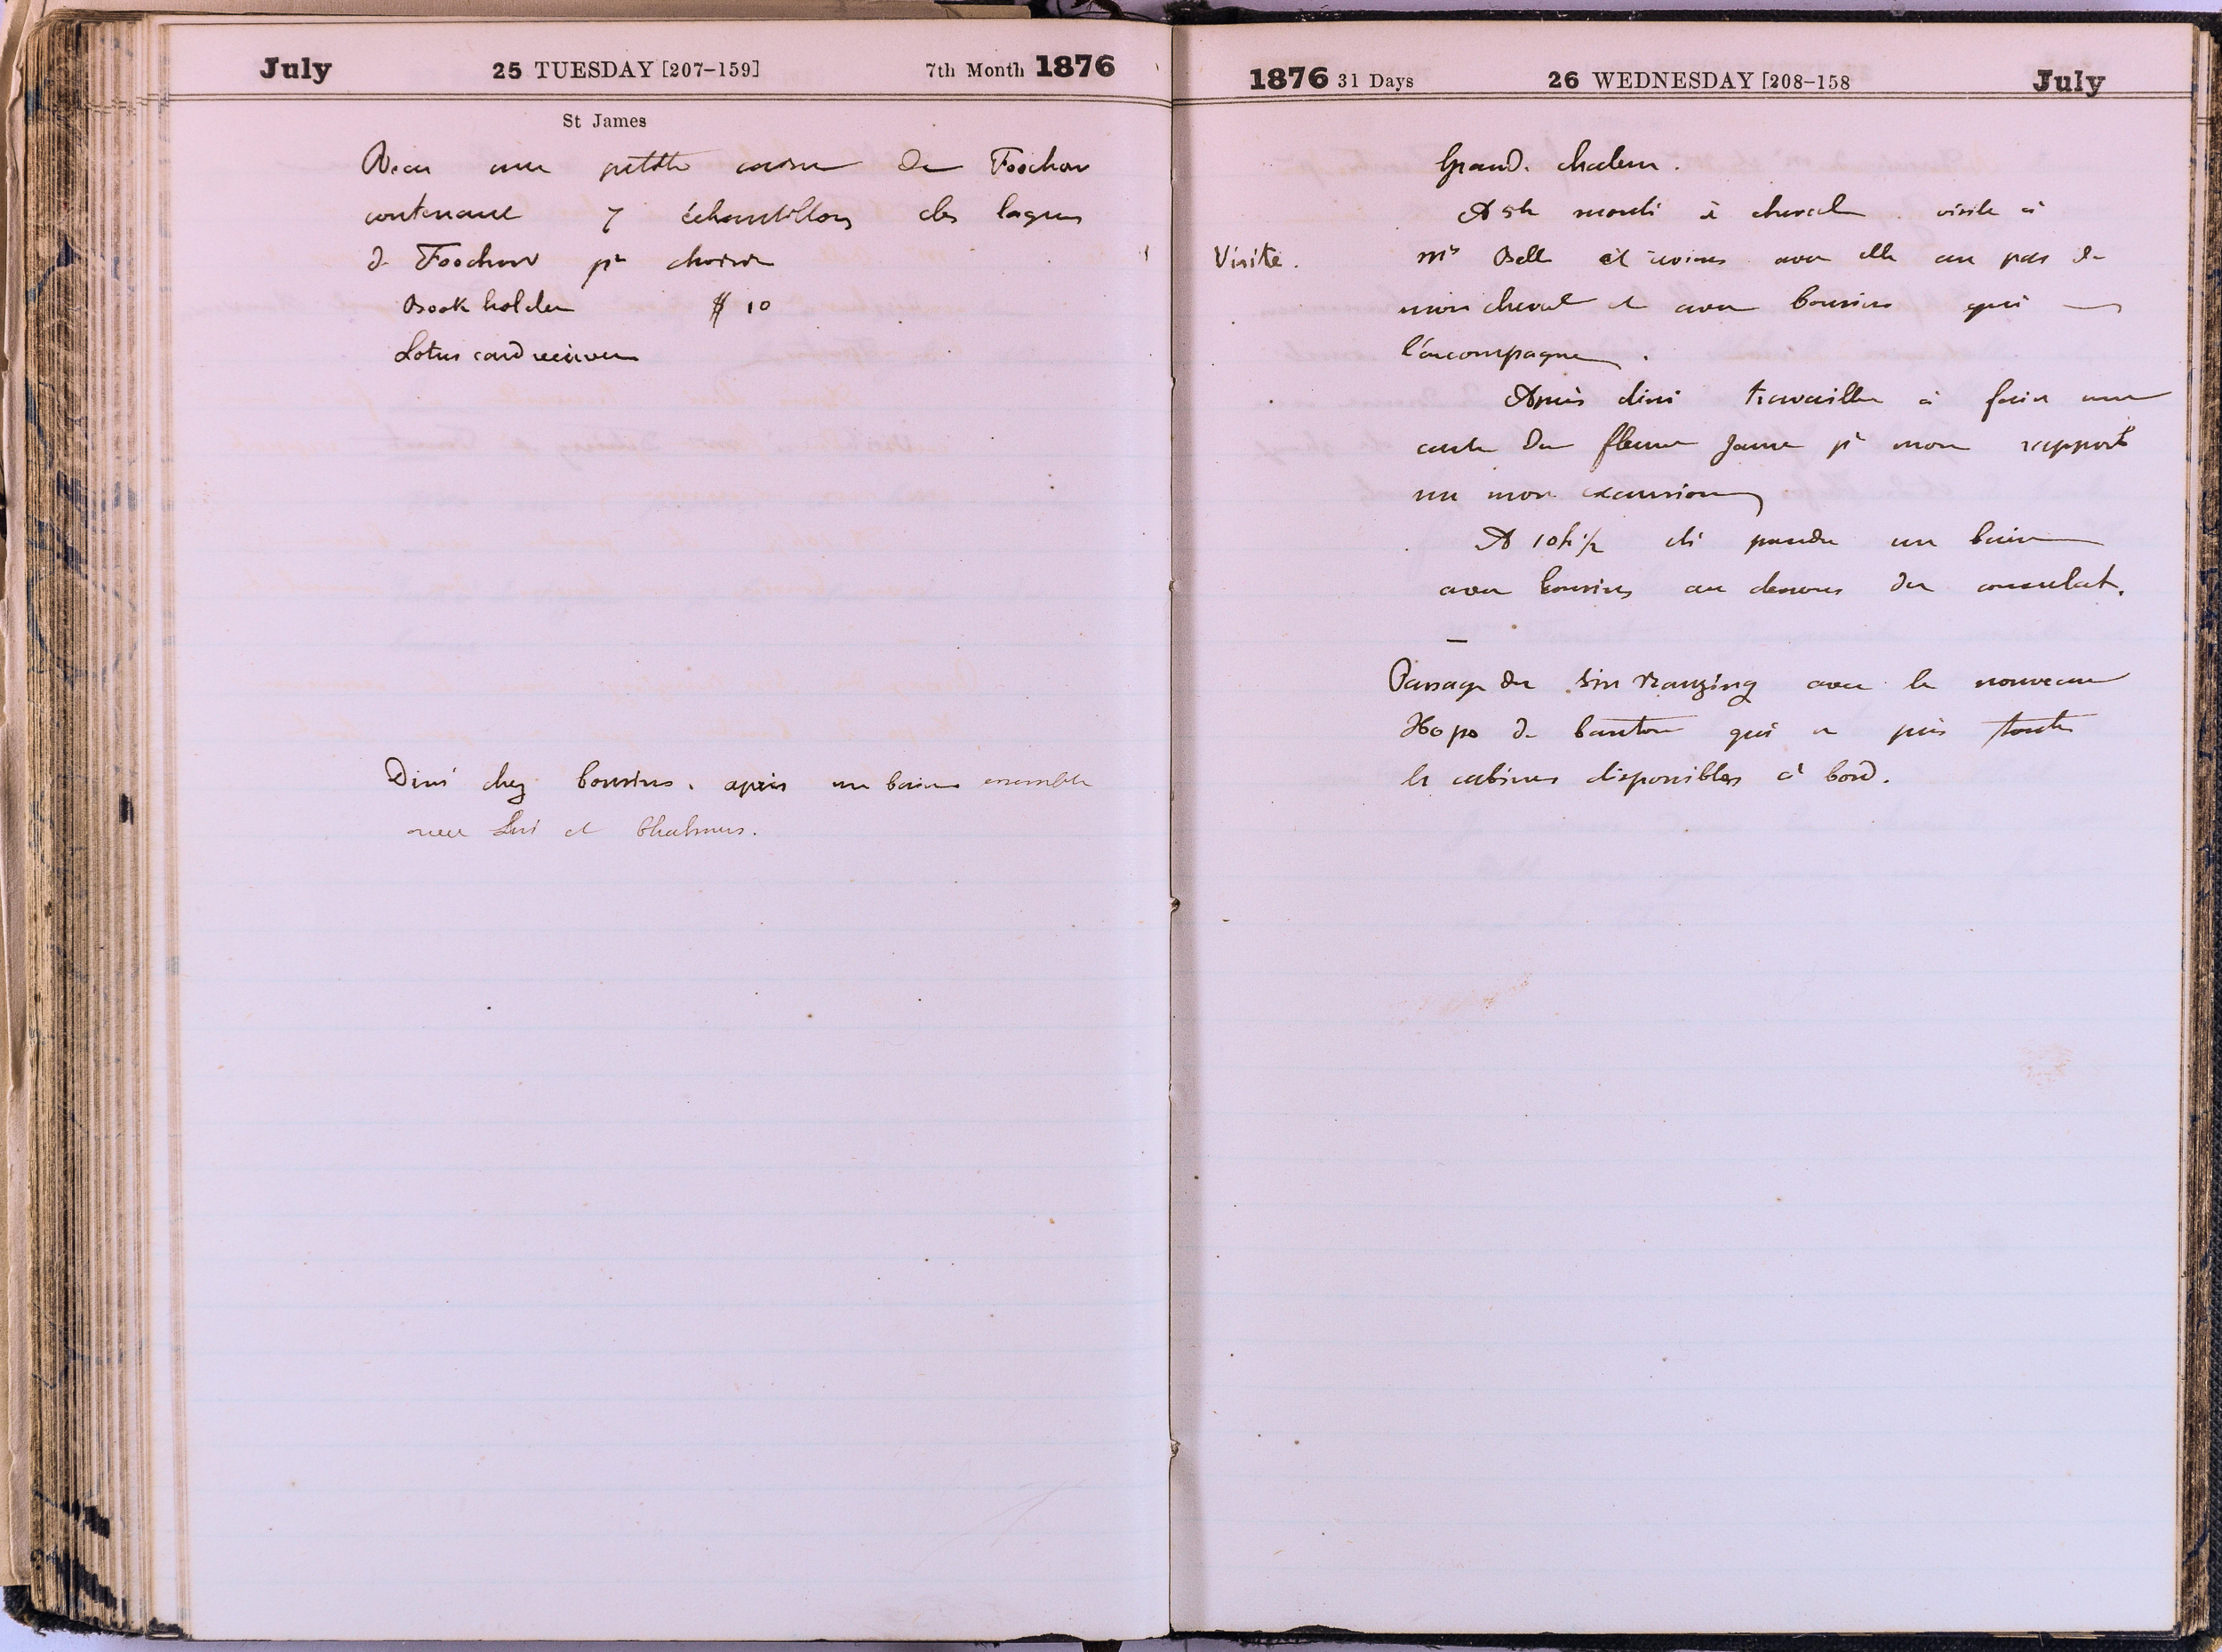 July 25 TUESDAY [207-159] 7th Month 1876
St James
Recu une petite caisse de Foochow
contenant 7 échantillons des laques
de Foochow pr choisir
Book holder $ 10
Lotus card receiver
Diné chez Cousins. après un bain ensemble
avec Lui et Chalmers.
1876 31 Days 26 WEDNESDAY [208-158 July
Grand. chaleur.
A 5h monté à cheval. visite à
Visite. Ms Bell et avec elle au pas de
mon cheval et avec Cousins qui
l'accompagne.
Après diné travailler à faire une
carte du fleuve Jaune pr mon rapport
sur mon excursion
A 10h½ été prendre un bain
avec Cousins au dessous du consulat.
—
Passage du Sin Nanzing avec le nouveau
Hopo de Canton qui a pris toute
les cabines disponibles à bord.